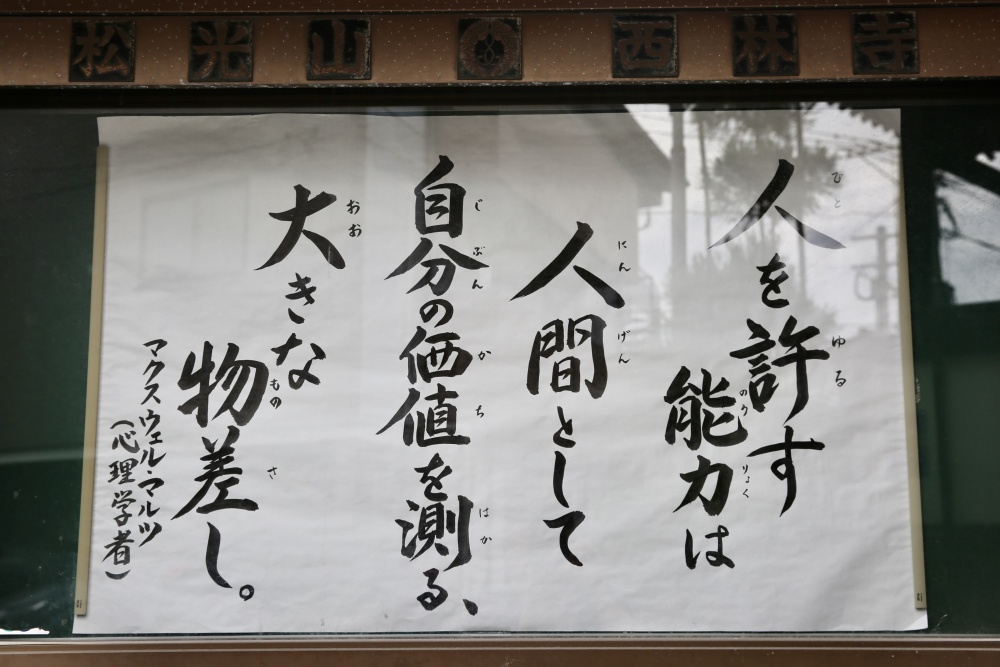 松光山 西林寺
人を許す
能力は
人間として
自分の価値を測る、
大きな
物差し。
マクスウェル・マルツ
（心理学者）
ひと
ゆる
のうりょく
にんげん
じぶん
かち
はか
おお
もの
さ